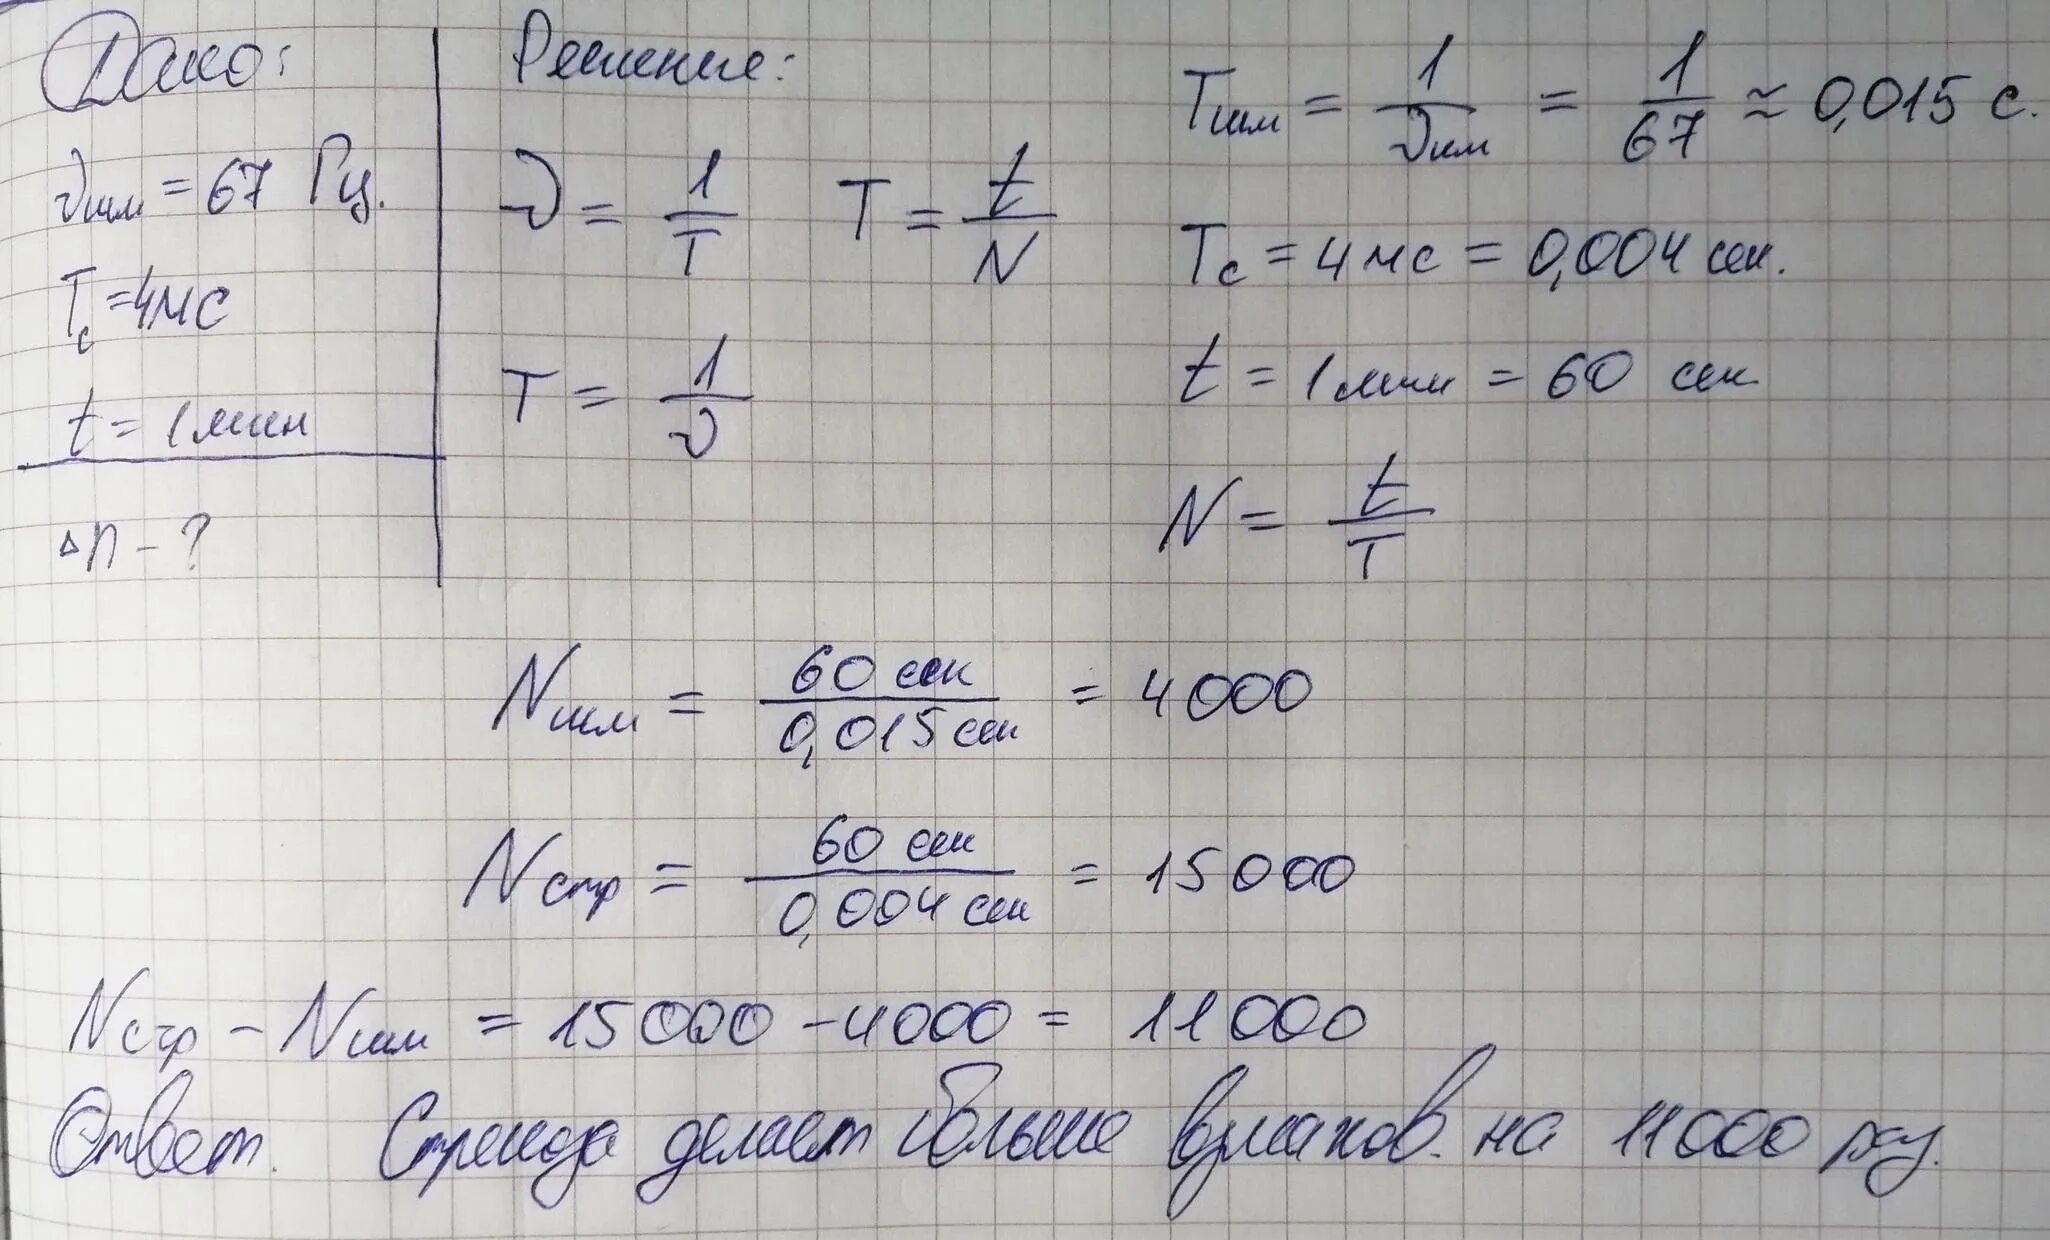 Дано:
νшм = 67 Гц.
Tс = 4мс
t = 1 мин
Δn - ?
Решение:
ν = 1/T T = t/N
T = 1/ν
Tшм = 1/νшм = 1/67 ≈ 0,015 с.
Tс = 4 мс = 0,004 сек.
t = 1 мин = 60 сек
N = t/T
Nшм = 60 сек / 0,015 сек = 4000
Nстр = 60 сек / 0,004 сек = 15000
Nстр - Nшм = 15000 - 4000 = 11000
Ответ. Стрекоза делает больше взмахов. на 11000 раз.